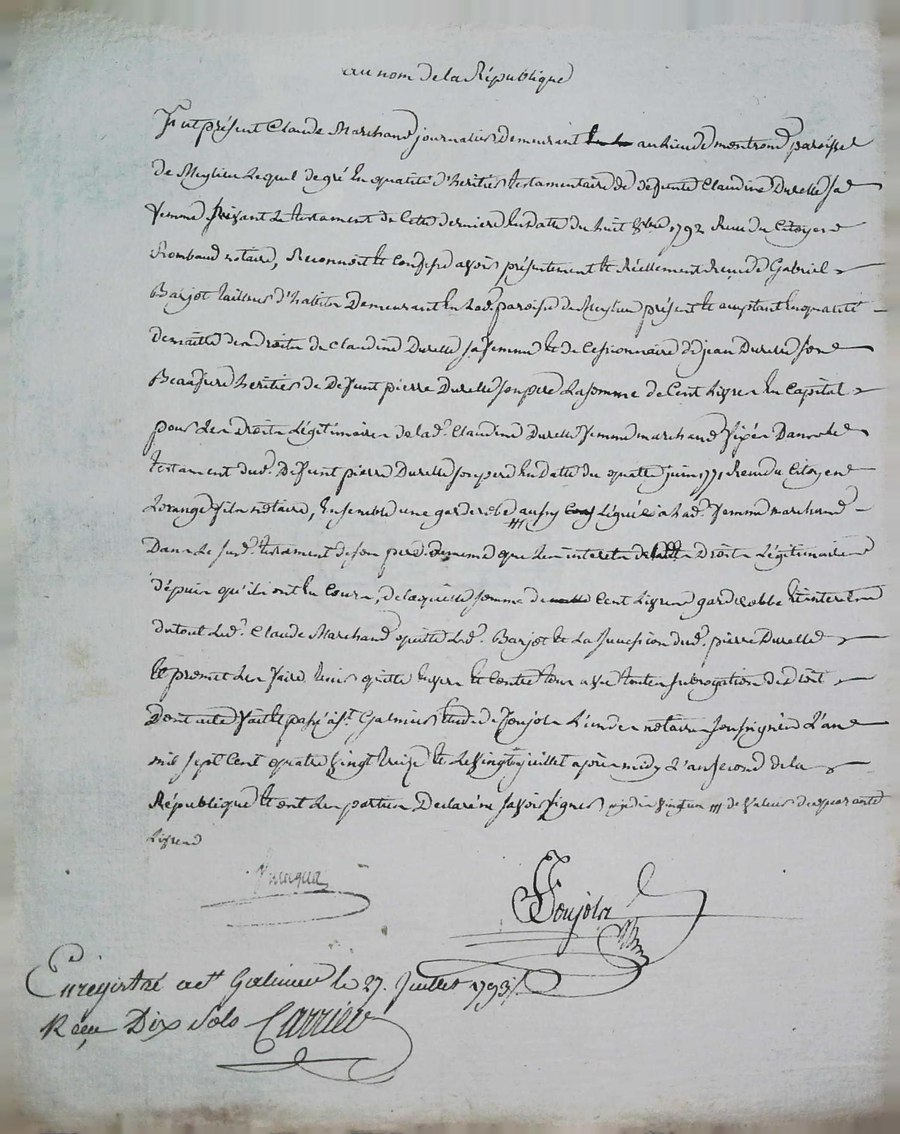 au nom de la République
Fut présent Claude Marchand journalier demeurant au lieu de montrond paroisse
de Meylieu Lequel de gré En qualité d'heritier testamentaire de defunte Claudine Durelle sa
femme suivant Le testament de Cette derniere En datte du huit 1792 Recu du Citoyen
Rombaud notaire, Reconnoit et Confesse avoir présentement et Réellement Recu de Gabriel
Barjot tailleur d'habits Demeurant En lad. paroisse de Meylieu présent et acceptant En qualité
de maitre des droits de Claudine Durelle sa femme et de Cessionnaire de jean Durelle son
Beaufrere heritier de Defunt pierre Durelle son pere La somme de Cent Livres En Capital
pour Les Droits Légitimaires de lad. Claudine Durelle femme marchand fixés Dans le
testament dud. Defunt pierre Durelle son pere En Datte du quatre juin 1771 Recu du Citoyen
Lorange fils notaire, Ensemble une garderobe aussy Leguée a Lad. femme marchand
Dans Le susd. testament de son pere, de meme que Les interets Droits Légitimaires
depuis qu'ils ont Eu Cours, de laquelle somme de Cent Livres garderobbe et interets
du tout Led. Claude Marchand quitte Led. Barjot et La succession dud. pierre Durelle
et promet Les faire tenir quitte Envers et Contre tous avec toutes subrogation de Droit
Dont acte fait et passé a St. Galmier Etude de Foujols L'un des notaires soussignés L'an
mil sept Cent quatre vingt treize et Le vingt juillet après midy L'an second de la
République Et ont Les parties Declaré ne savoir signer de valeur de quarante
Livres
Foujols
Enregistré a St Galmier le 27. Juillet 1793
Reçu Dix Sols Carrier